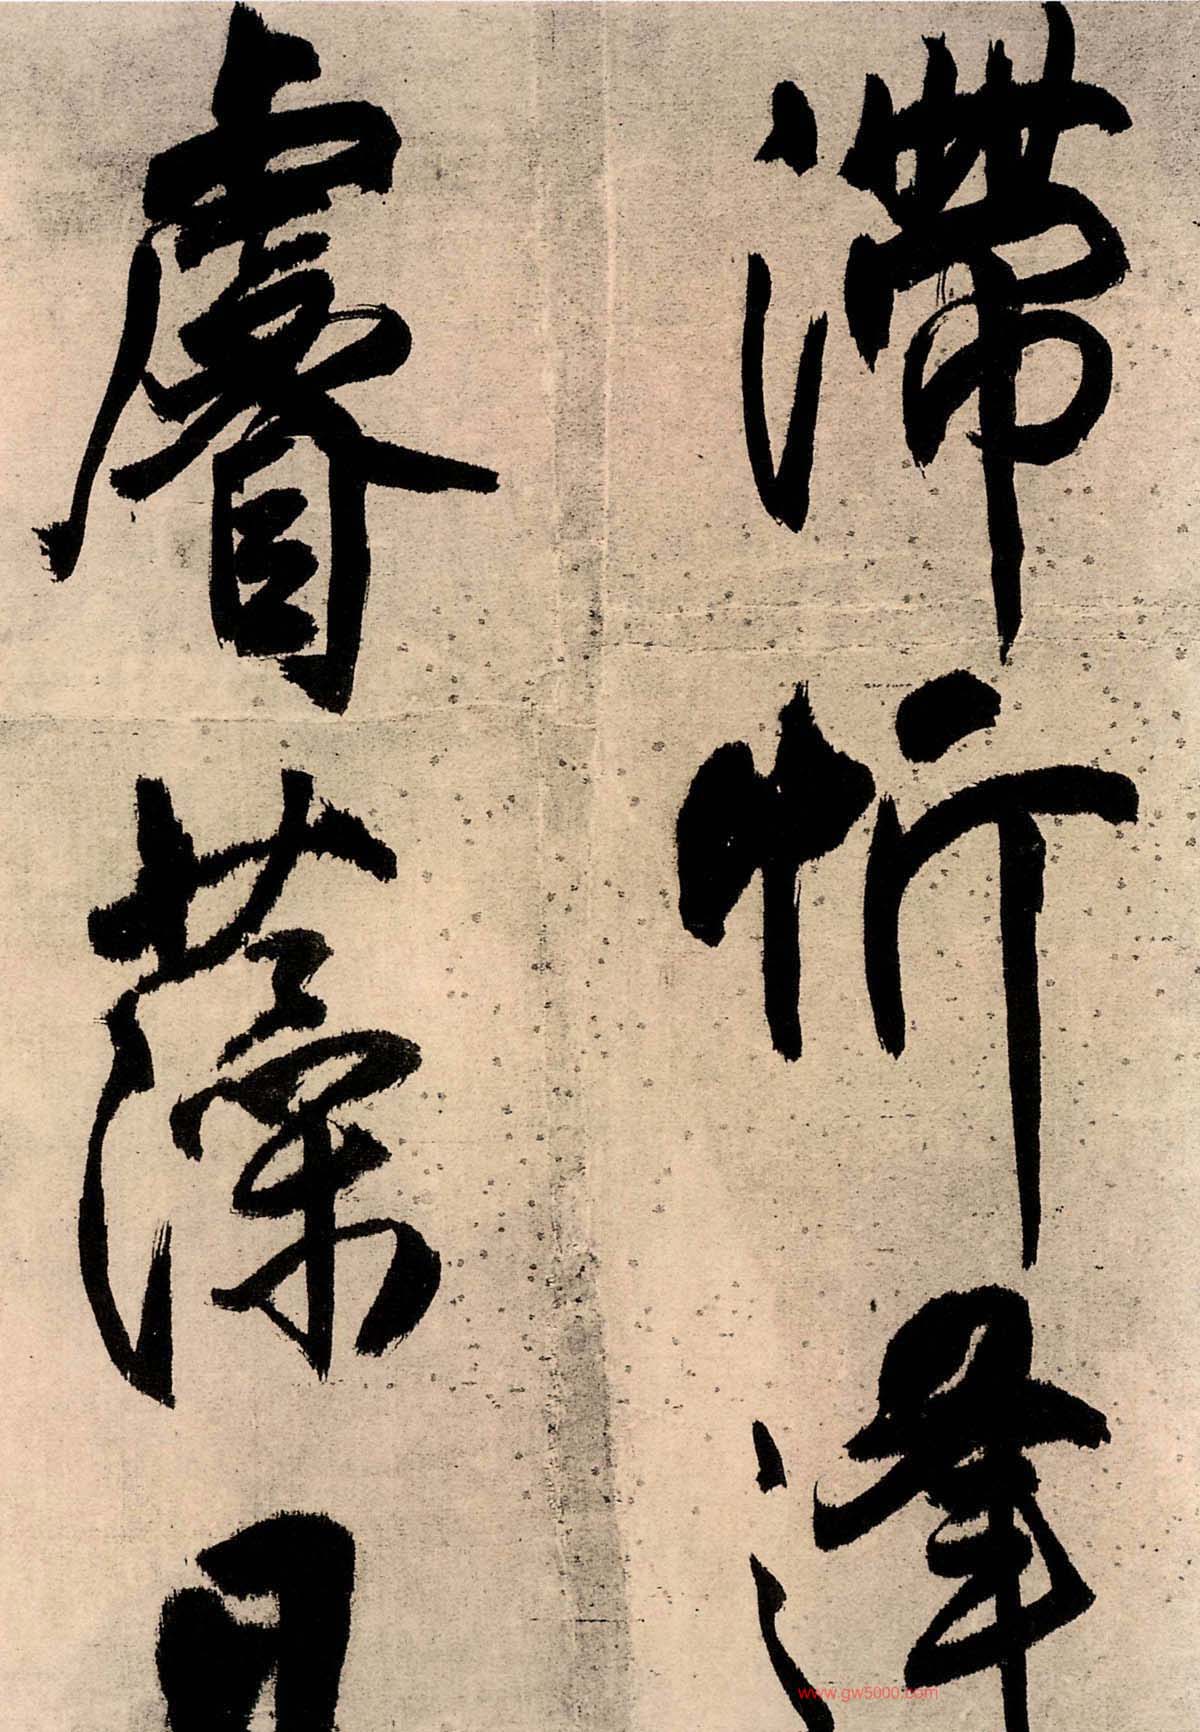 滯忻澤
睿藻日
www.gw5000.com